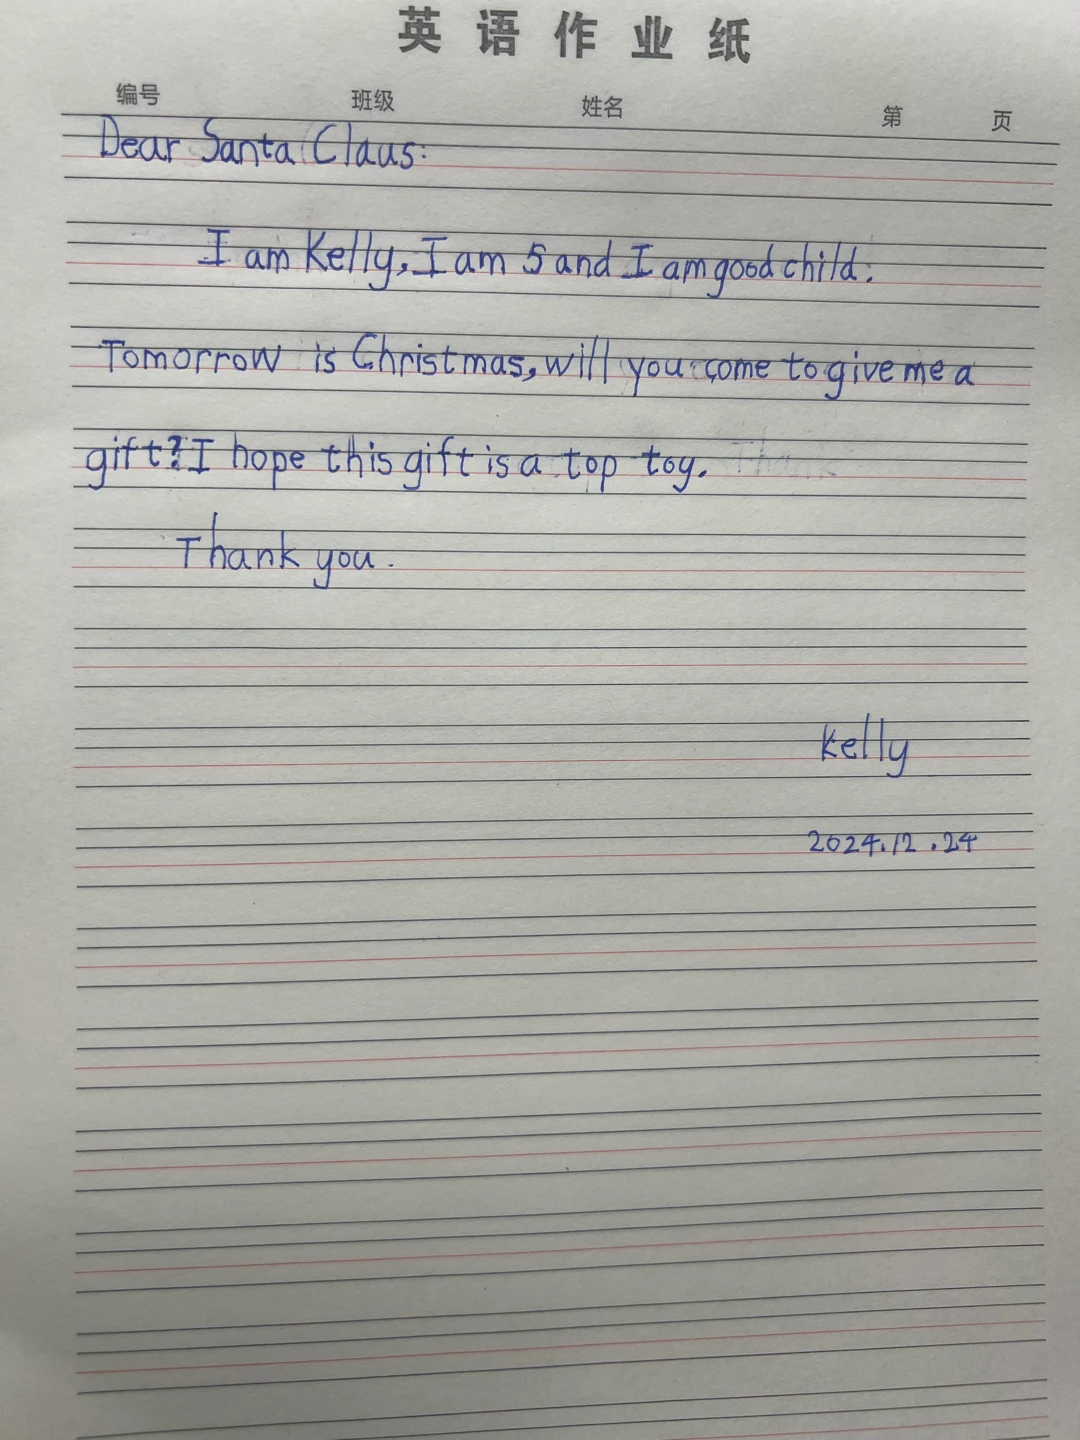 英语作业纸
编号 班级 姓名 第 页
Dear Santa Claus:
I am Kelly, I am 5 and I am good child.
Tomorrow is Christmas, will you come to give me a
gift? I hope this gift is a top toy. Thank
Thank you.
kelly
2024.12.24